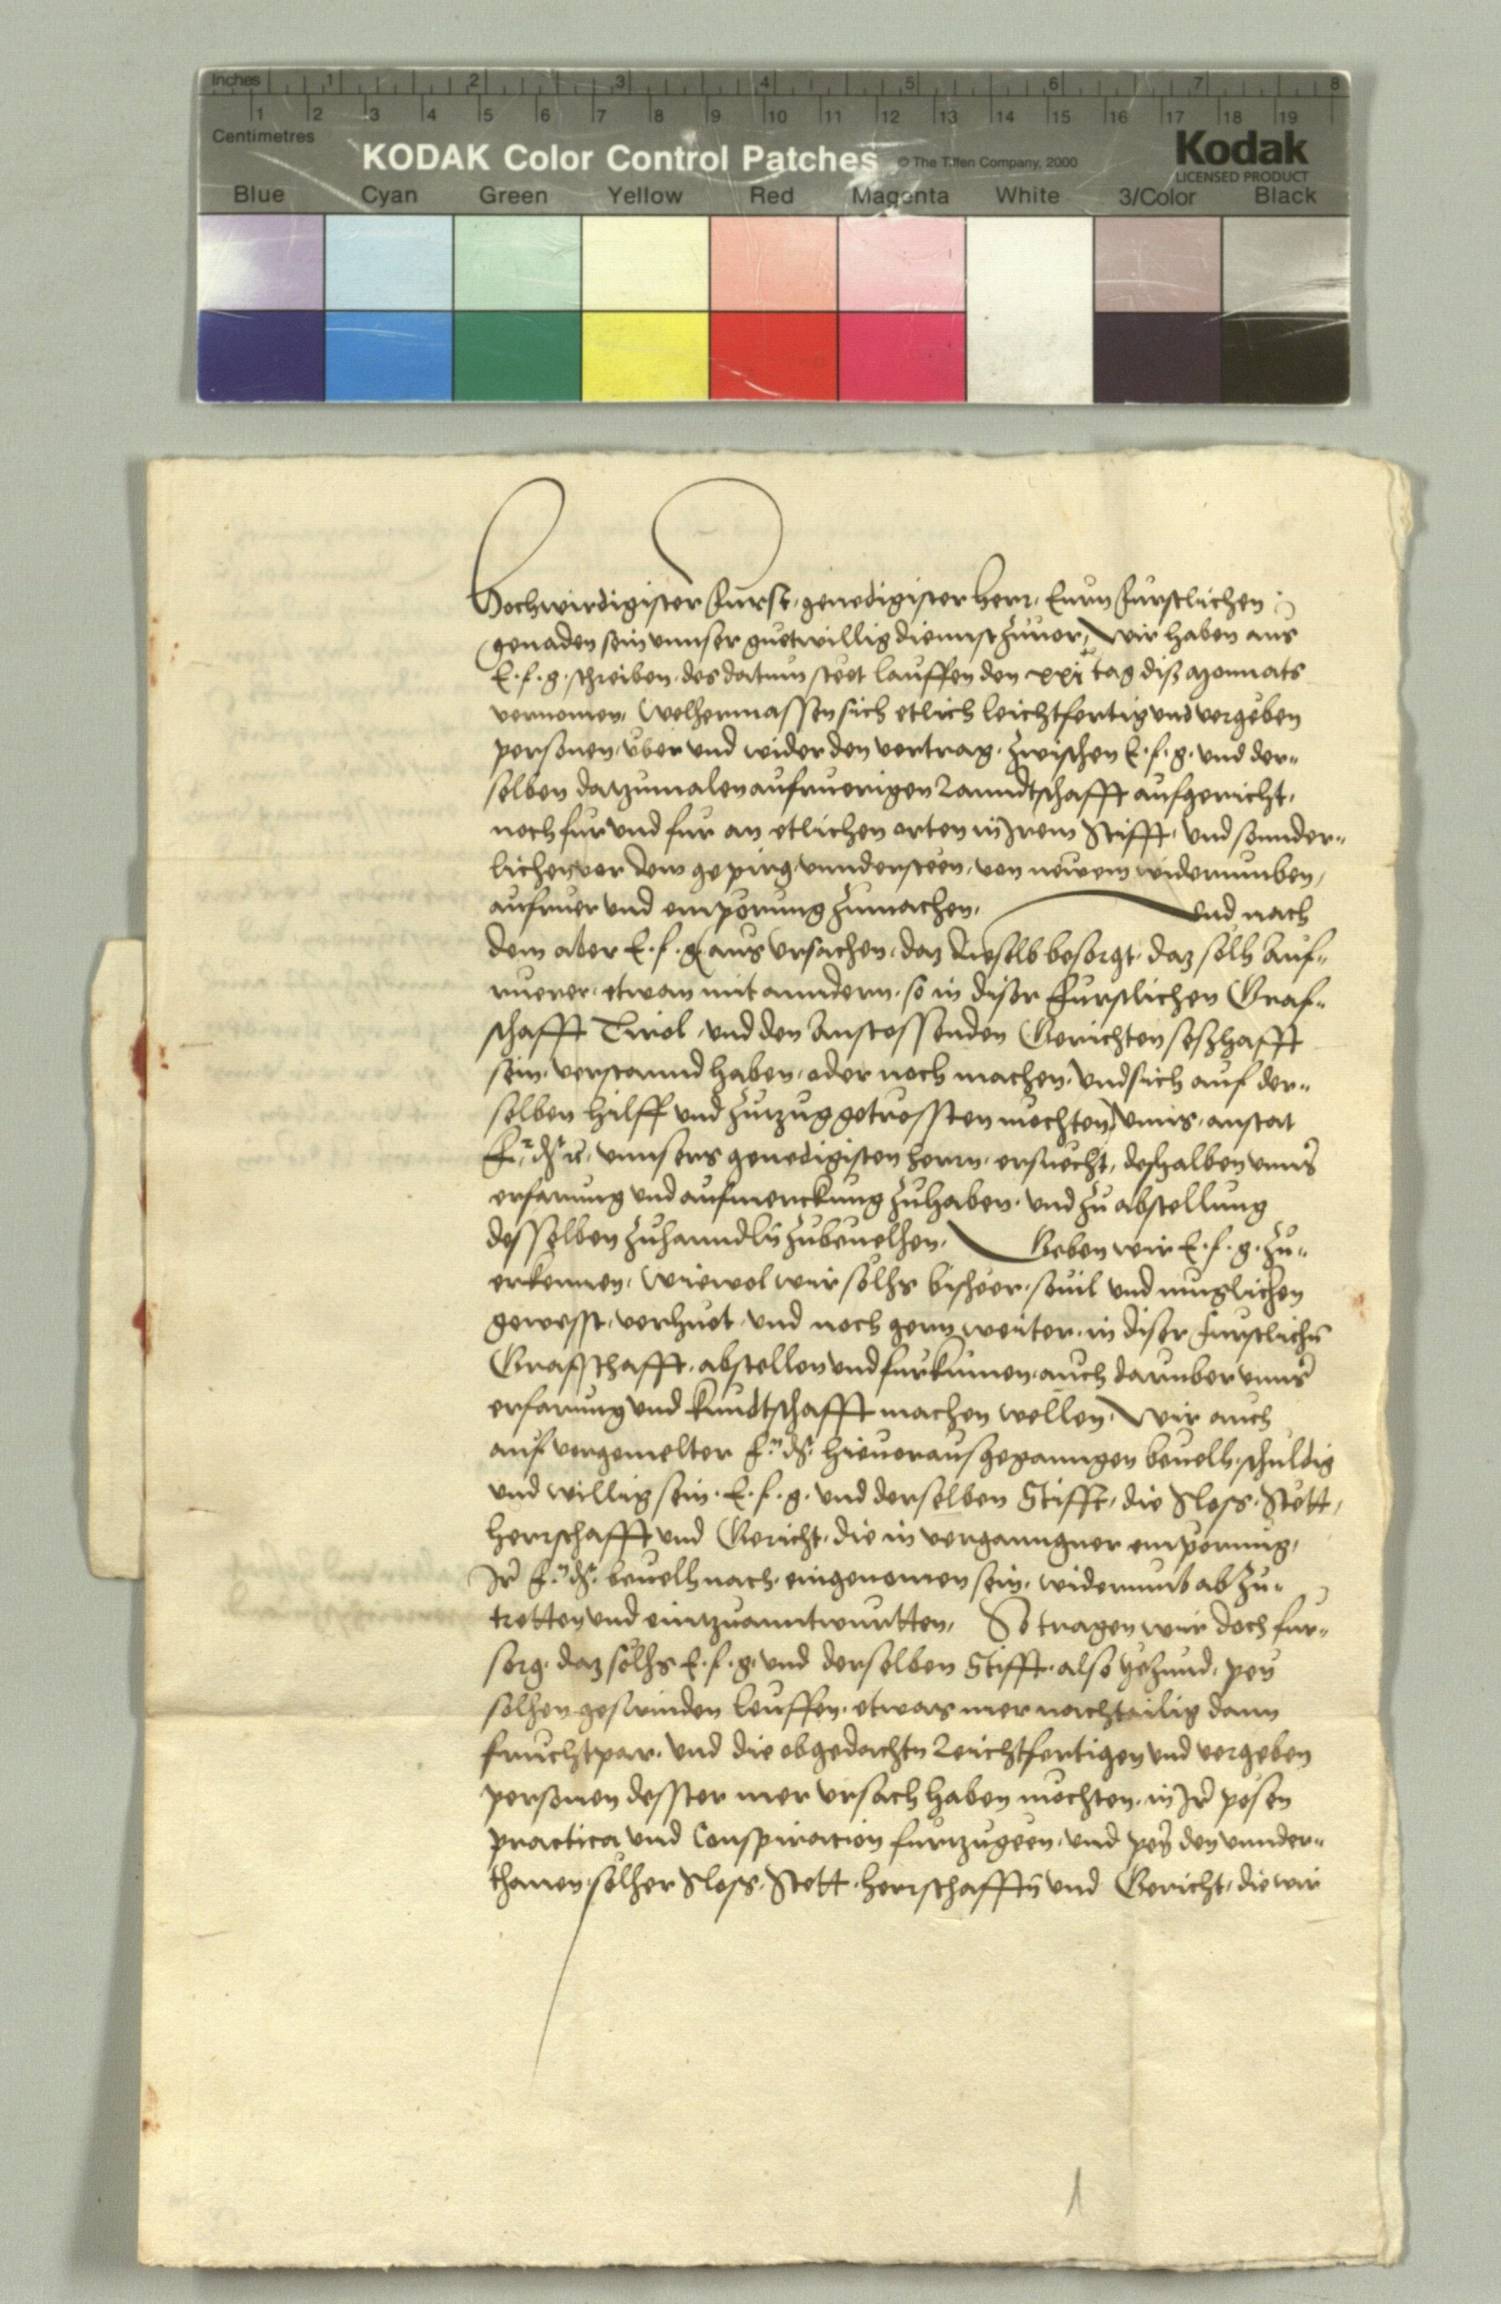 Inches 1 2 3 4 5 6 7 8
1 2 3 4 5 6 7 8 9 10 11 12 13 14 15 16 17 18 19
Centimetres
KODAK Color Control Patches © The Tiffen Company, 2000 Kodak
LICENSED PRODUCT
Blue Cyan Green Yellow Red Magenta White 3/Color Black
Hochwirdigister Furst, genedigister herr, Eurn Furstlichen
genaden sein unnser guetwillig diennst zuuor, Wir haben aus
E. f. g. schreiben, des datum steet lauffen den xxi tag diß Monnats
vernomen, Welhermassen sich etlich leichtfertig und vergeben
personen, uber und wider den vertrag, zwischen E. f. g. und der-
selben datzumalen aufruerigen Lanndtschafft aufgericht,
noch fur und fur an etlichen orten in Irem Stifft, und sonnder-
lichen vor dem gepirg, unndersteen, von newem widerumben,
aufruer und emporung zumachen, Und nach
dem aber E. f. g. aus ursachen, daz dieselb besorgt, daz solh Auf-
ruerer, etwan mit anndern, so in diser Furstlichen Graf-
schafft Tirol, und den Anstossenden Gerichten seßhafft
sein, verstannd haben, oder noch machen, und sich auf der-
selben hilff und zuezug getrossten mochten, unns, anstat
F. D. unnsers genedigisten herrn, ersuecht, deshalben unnser
erfarung und aufmerckung zuhaben, und zu abstellung
desselben zuhanndln zubeuelhen, Geben wir E. f. g. zu-
erkennen, Wiewol wir solhs bisheer, souil und muglichen
gewesst, verhuet, und noch gern weiter, in diser Furstlichn
Grafschafft, abstellen und furkumen, auch daruber unnser
erfarung und kundtschafft machen wellen, Wir auch
auf vorgemelter F. D. hieuor ausgeganngen beuelh, schuldig
und willig sein, E. f. g. und derselben Stifft, die Sloss, Stett,
herrschafft und Gericht, die in verganngner emporung,
Ir F. D. beuelh nach, eingenomen sein, widerumb abzu-
tretten und eintzuanntwurtten, So tragen wir doch fur-
sorg, daz solhs E. f. g. und derselben Stifft, also yetzund, pey
solhen geswinden leuffen, etwas mer nachteilig dann
fruchtpar, und die obgedachtn Leichtfertigen und vergeben
personen desster mer ursach haben mochten, in Ir posen
practica und Conspiracion furtzugeen, und pey den unnder-
thanen, solher Sloss, Stett, herrschafftn und Gericht, die wir
1